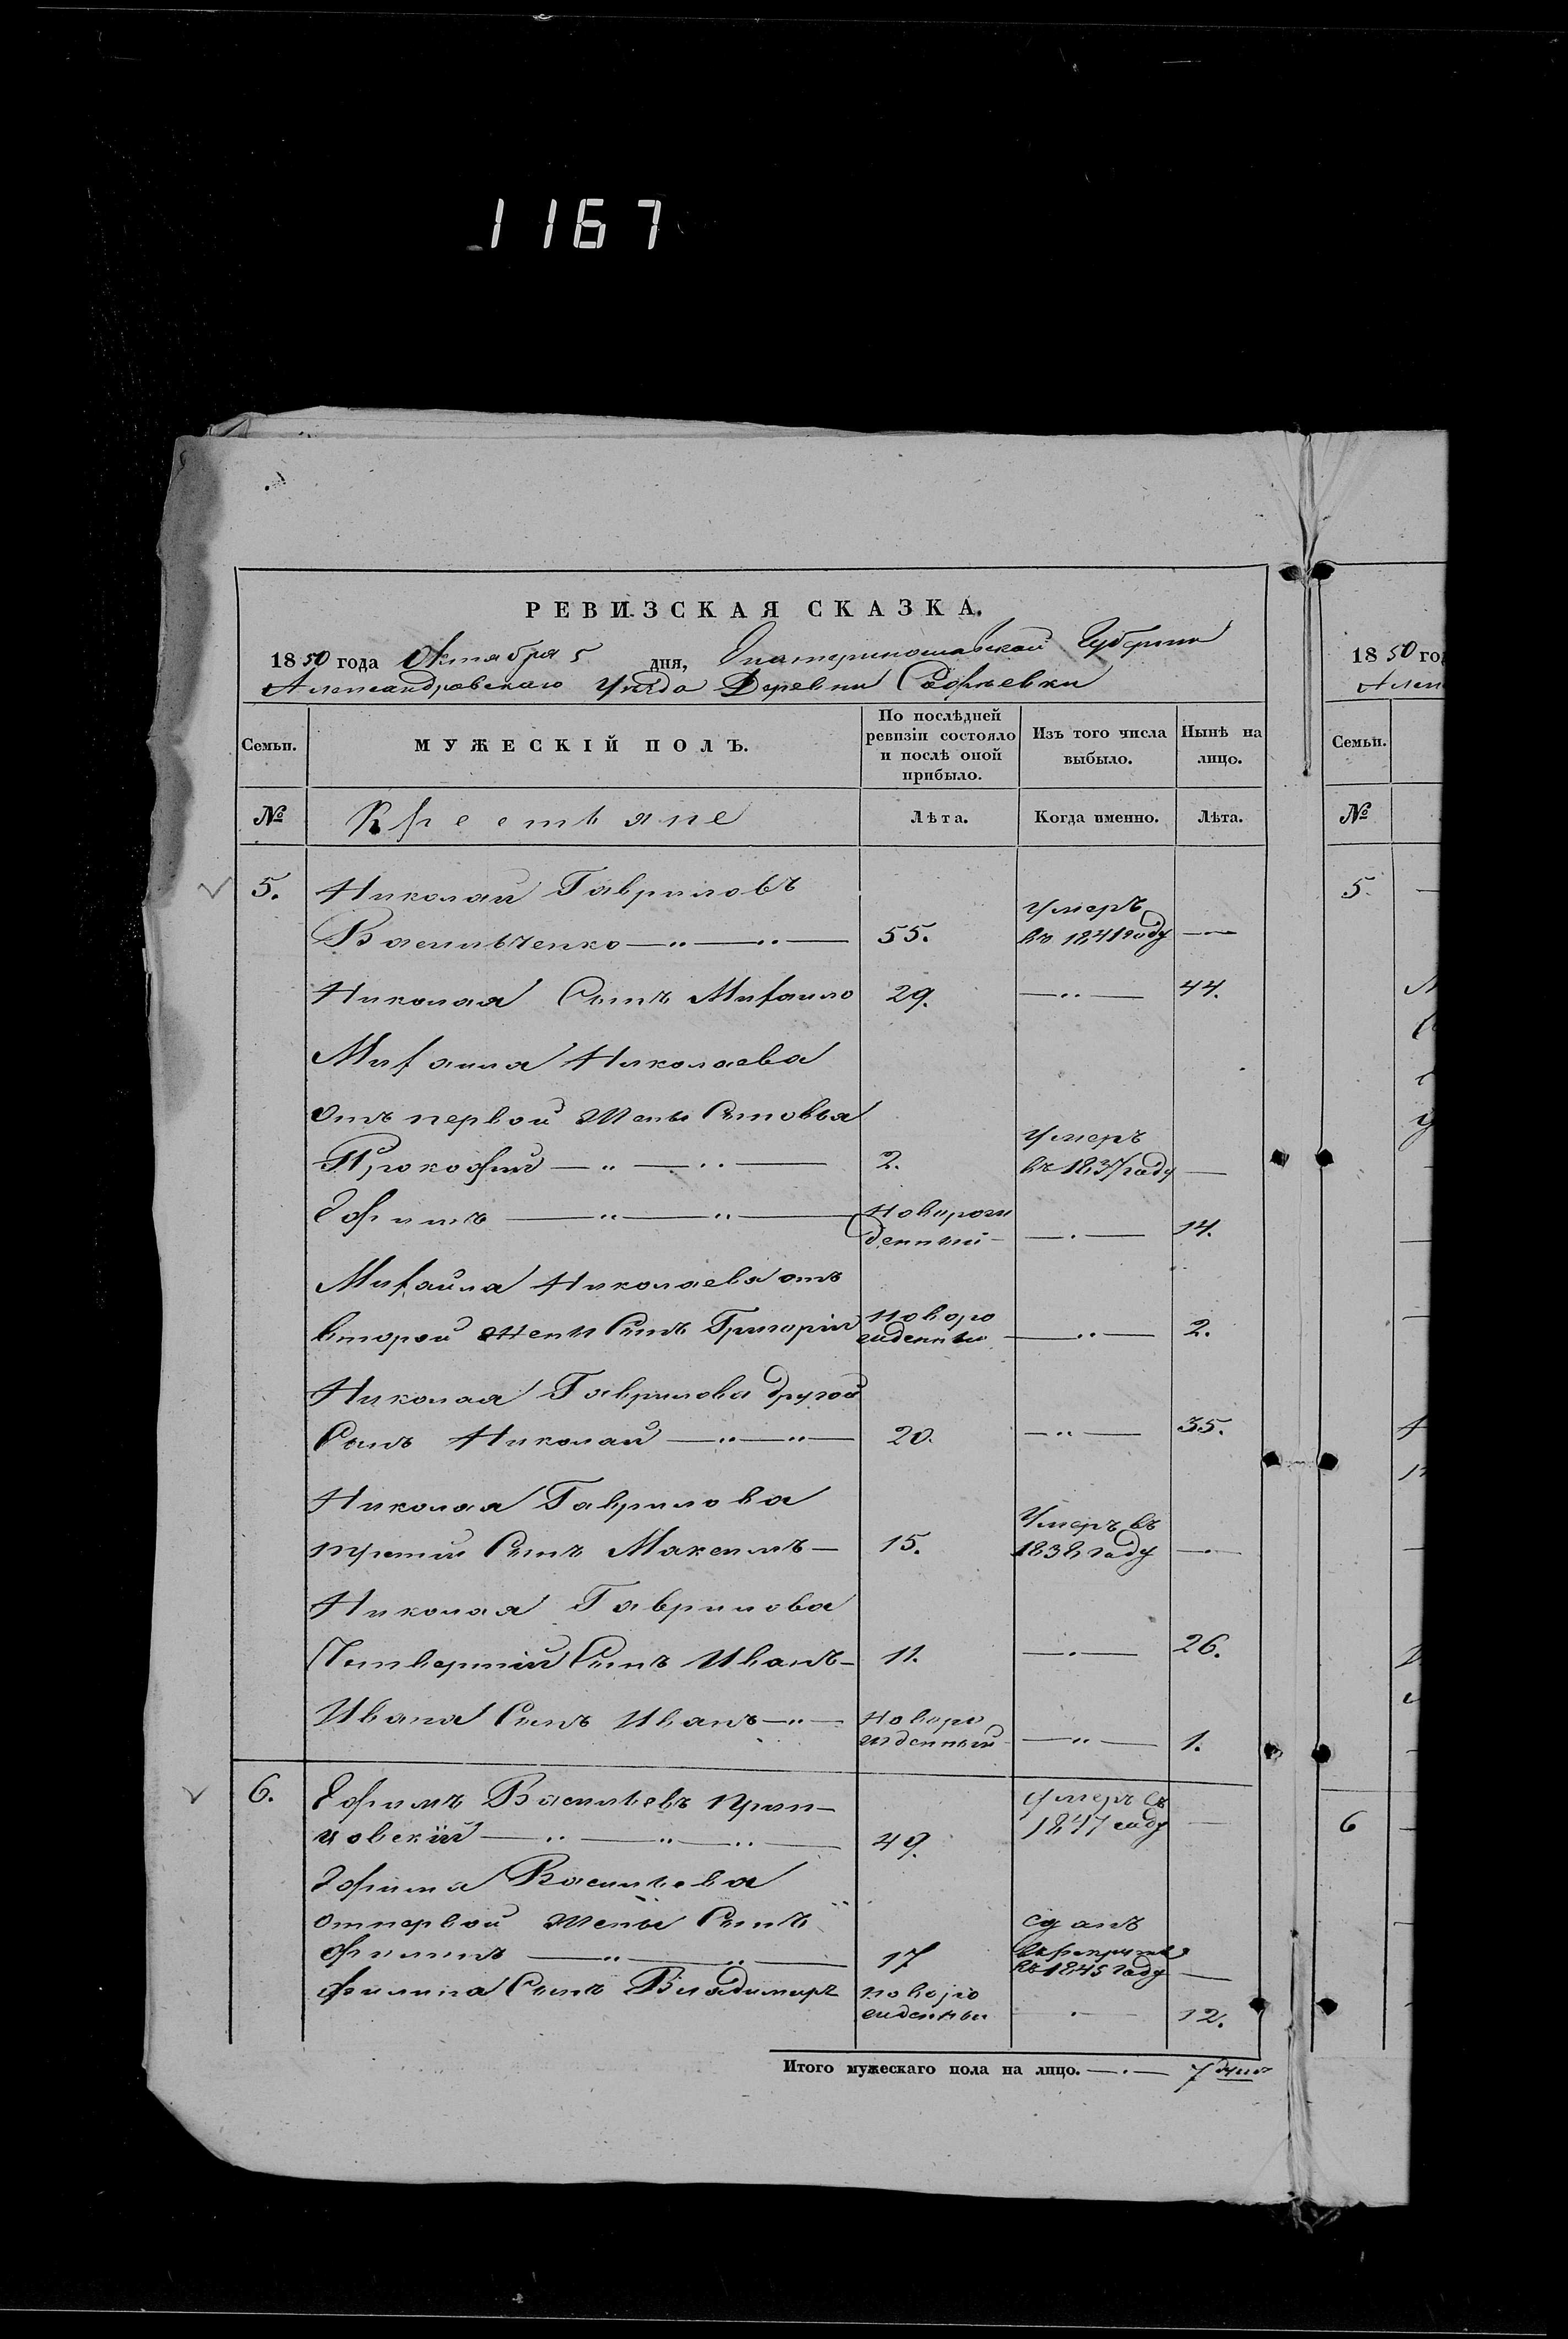 1167
РЕВИЗСКАЯ СКАЗКА.
1850 года Октября 5 дня, Екатеринославской Губернии
Александровскаго Уезда Деревни Софиевки
Семьи.
МУЖЕСКІЙ ПОЛЪ.
По послѣдней ревизіи состояло и послѣ оной прибыло.
Изъ того числа выбыло.
Нынѣ на лицо.
№ Крестьяне Лѣта. Когда именно. Лѣта.
5. Николай Гавриловъ
Умеръ
Васильченко 55. въ 1841 году
Николая Сынъ Михайло 29. 44.
Михайла Николаева
Отъ первой Жены Сыновья
Умеръ
Прокофий 2. въ 1837 году
Ефимъ новорож
денный 14.
Михайла Николаева отъ
второй жены Сынъ Григорій новоро
жденный 2.
Николая Гаврилова другой
Сынъ Николай 20. 35.
Николая Гаврилова
Умеръ въ
третий Сынъ Максимъ 15. 1838 году
Николая Гаврилова
Четвертий Сынъ Иванъ 11. 26.
Ивана Сынъ Иванъ новоро
жденный 1.
6. Ефимъ Васильевъ
Умеръ въ
49. 1847 году
Ефима Васильева
отпервой жены Сынъ сданъ
Филипъ 17 въ рекруты
въ 1845 году
Филипа Сынъ Владимиръ новоро
жденный 12.
Итого мужескаго пола на лицо. 7 душъ
1850 год
Семьи.
№
5
6